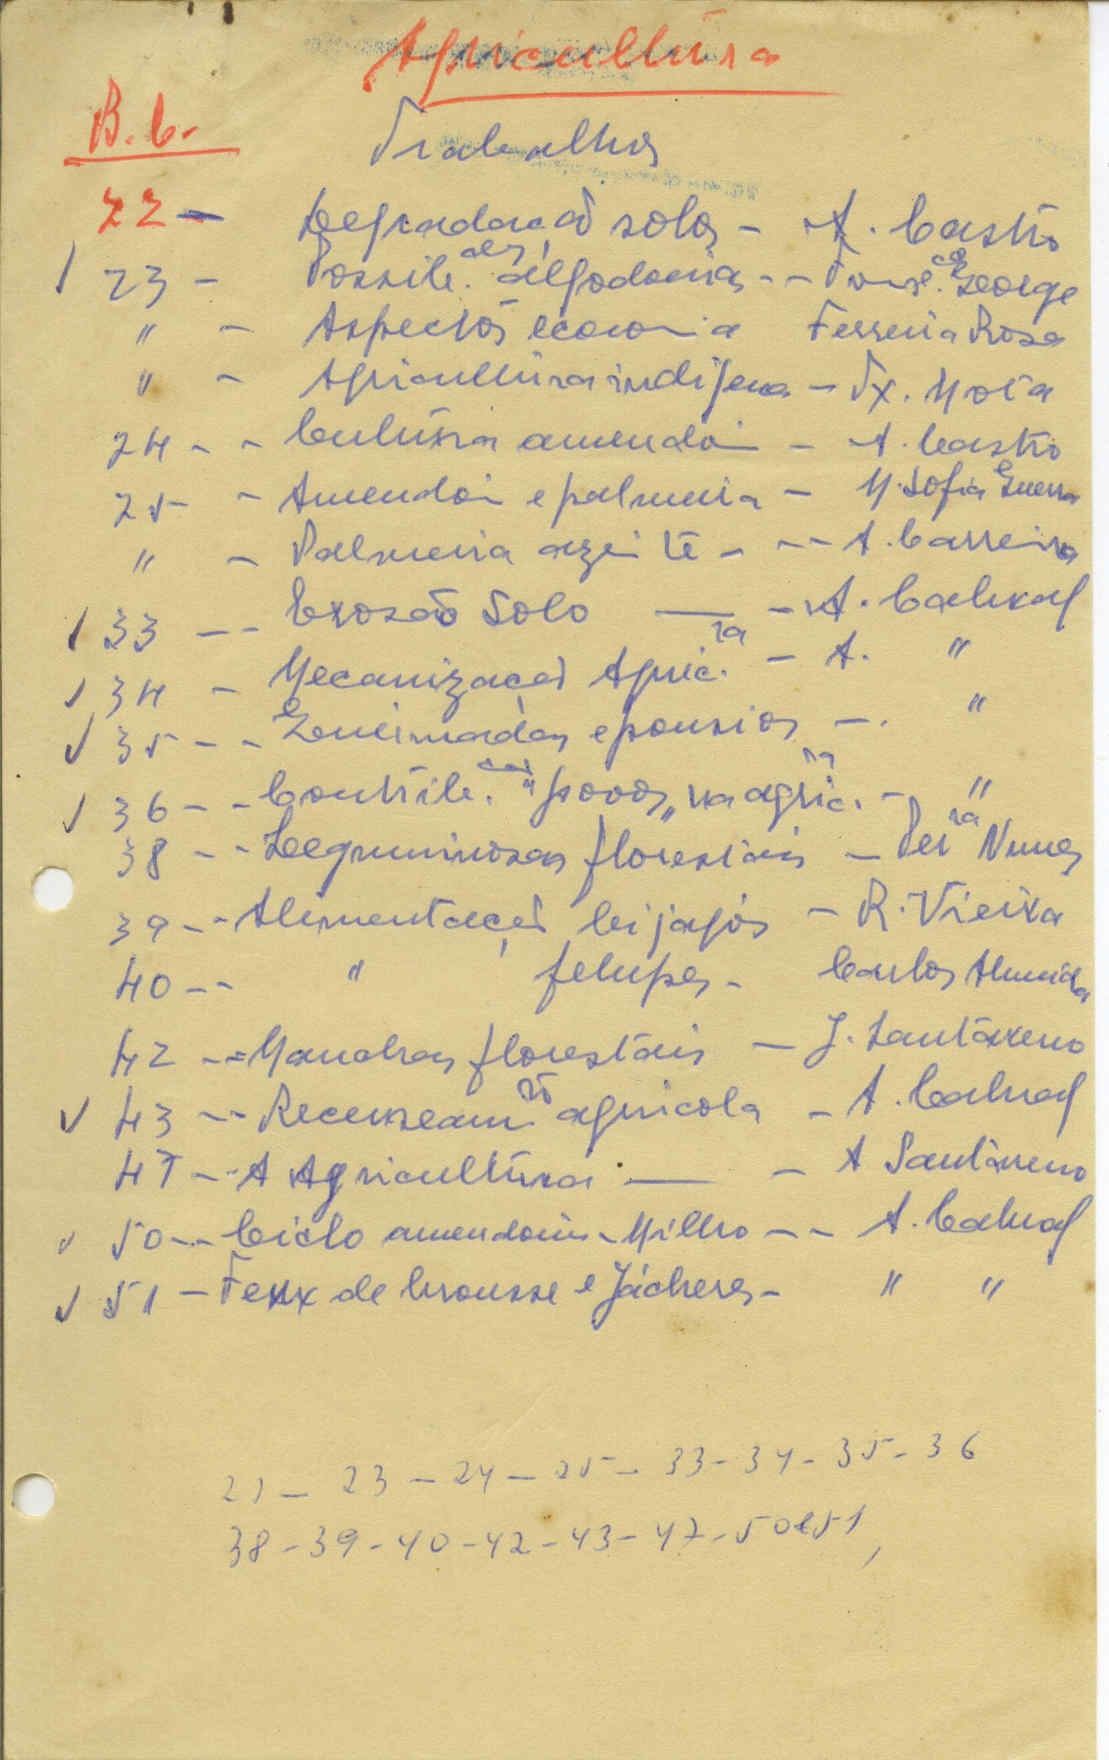 Agricultura
B.C.
Trabalhos
22 - Degradação solos - A. Castro
23 - Possib.des algodoeiras - - Fons.ca George
" - Aspectos economia Ferreira Rosa
" - Agricultura indígena - Tx. Mota
24 - - Cultura amendoi - A. Castro
25 - Amendoi e palmeira - M. Sofia Guerra
" - Palmeira azeite - - - A. Carreira
33 - - Erosão Solo - A. Cabral
34 - Mecanização Agric.ra - A. "
35 - - Queimadas e pousios - . "
36 - - Contrib.ção "povos" na agric.ra - "
38 - - Leguminosas florestais - Per.ra Nunes
39 - - Alimentação bijagós - R. Vieira
40 - - " felupes - Carlos Almeida
42 - - Manchas florestais - J. Santareno
43 - - Recenseam.to agricola - A. Cabral
47 - - A Agricultura - A Santareno
50 - - Ciclo amendoim - Milho - - A. Cabral
51 - Feux de brousse e Jácheres - " "
22 - 23 - 24 - 25 - 33 - 34 - 35 - 36
38 - 39 - 40 - 42 - 43 - 47 - 50 e 51,